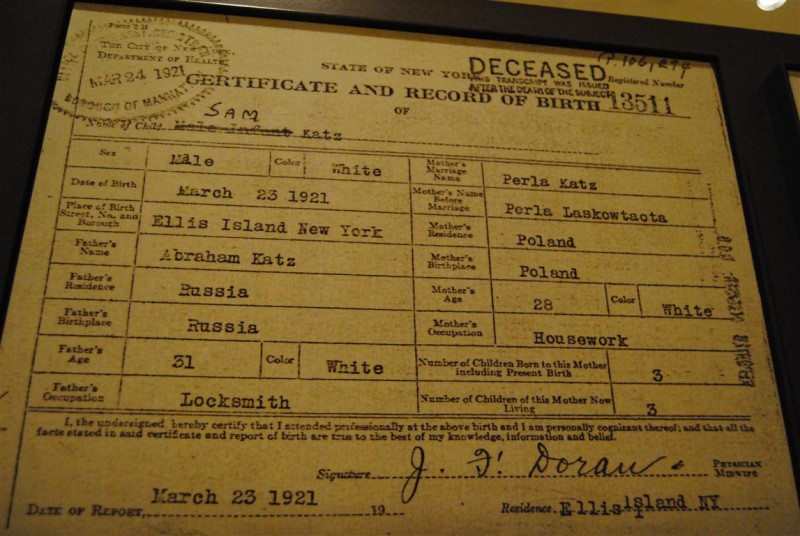 Form 2 B
THE CITY OF NEW YORK.
DEPARTMENT OF HEALTH
MAR 24 1921
BOROUGH OF MANHAT
P. 106,294
STATE OF NEW YORK
DECEASED
THIS TRANSCRIPT WAS ISSUED
AFTER THE DEATH OF THE SUBJECT
Registered Number
CERTIFICATE AND RECORD OF BIRTH 13511
OF
SAM
Name of Child Male Infant Katz
Sex Male Color White
Mother's Marriage Name Perla Katz
Date of Birth March 23 1921
Mother's Name Before Marriage Perla Laskowtaota
Place of Birth Street, No. and Borough Ellis Island New York
Mother's Residence Poland
Father's Name Abraham Katz
Mother's Birthplace Poland
Father's Residence Russia
Mother's Age 28 Color White
Father's Birthplace Russia
Mother's Occupation Housework
Father's Age 31 Color White
Number of Children Born to this Mother including Present Birth 3
Father's Occupation Locksmith
Number of Children of this Mother Now Living 3
I, the undersigned hereby certify that I attended professionally at the above birth and I am personally cognizant thereof; and that all the
facts stated in said certificate and report of birth are true to the best of my knowledge, information and belief.
Signature J. F. Doran PHYSICIAN
MIDWIFE
DATE OF REPORT, March 23 1921 19
Residence Ellis Island NY